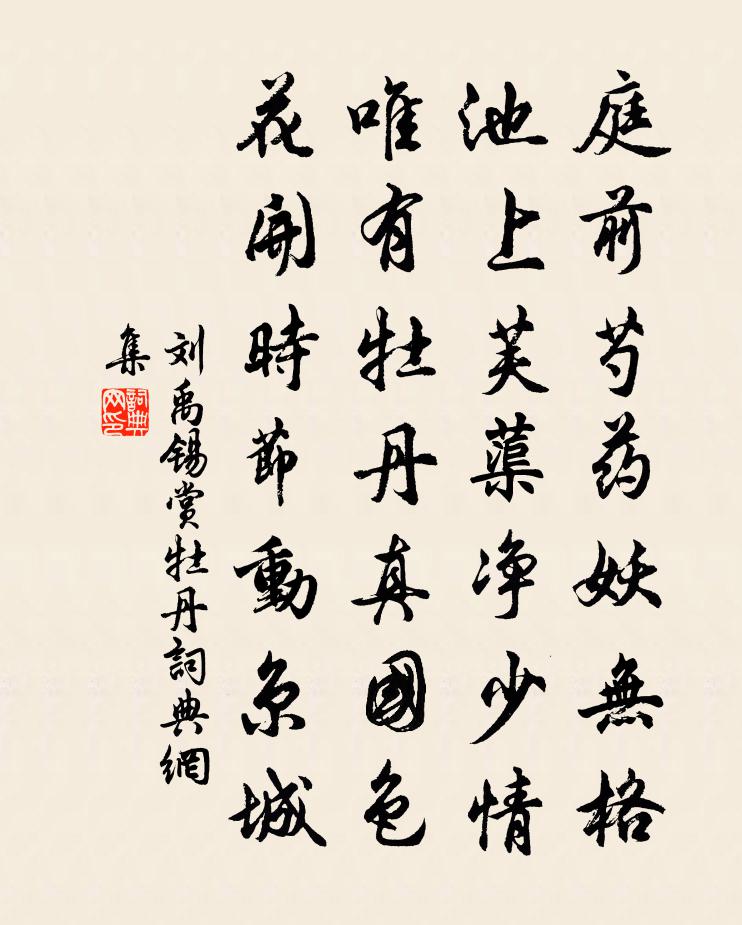 庭前芍药妖無格
池上芙蕖净少情
唯有牡丹真國色
花開時節動京城
刘禹锡賞牡丹詞典網
集
詞典網印